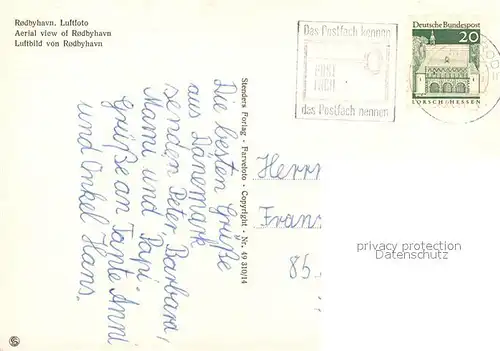 Rødbyhavn. Luftfoto
Aerial view of Rødbyhavn
Luftbild von Rødbyhavn
Das Postfach kennen
das Postfach nennen
Deutsche Bundespost
20
LORSCH/HESSEN
Stenders Forlag · Farvefoto · Copyright · Nr. 49 310/14
Die besten Grüße
aus Dänemark
senden Peter, Barbara,
Mami und Papi.
Grüße an Tante Anni
und Onkel Hans.
Herrn
Franz
85
privacy protection